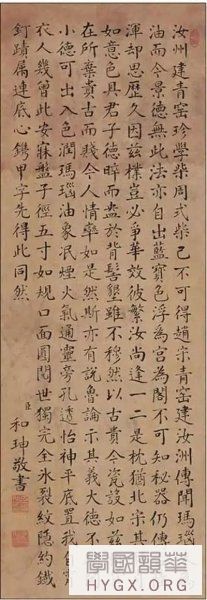 汝州建青窑珍學柴周式柴已不可得趙宋青窑建汝洲傳聞瑪瑙
油而令景德無此法亦自出藍寶色浮為宫為閣不可知秘器仍傳
渾却思歷久因兹樸豈必爭華效彼繁汝尚逢一二是枕猶北宗其
如意色具君子德晬而盎於背髻墾雖不穆然以古貴今瓷設如兹
在所棄貴古而賤今人情率如是然斯亦有説魯論示其義大德不
小德可出入色潤瑪瑙油象泯煙火氣通靈旁孔透怡神平底置我自宵
衣人幾曾此安寐盤子徑五寸如規口面圓閱世獨完全氷裂紋隱約鐵
釘蹟屬連底心鐫甲字先得此同然
臣和珅敬書
學國韻華
HYGX.ORG